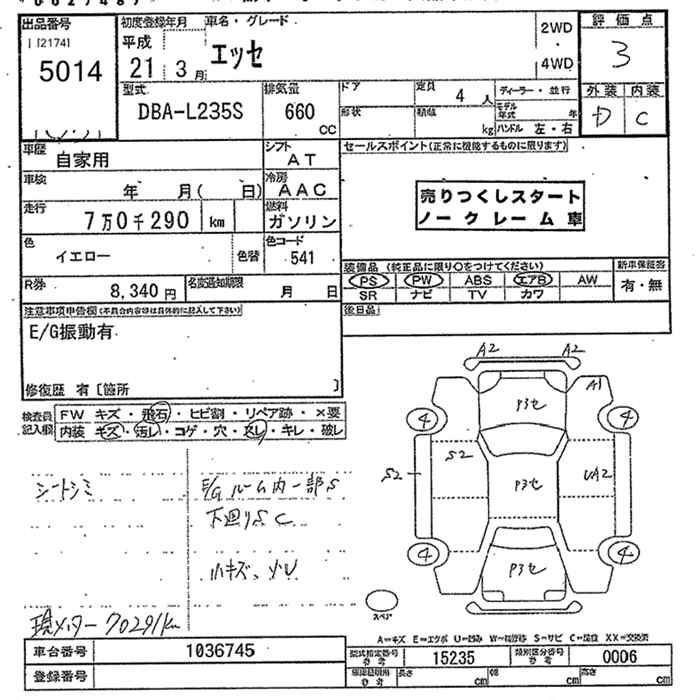 出品番号
5014
初度登録年月
平成
21 3月
車名・グレード
エッセ
2WD
4WD
評価点
3
外装 内装
D C
型式
DBA-L235S
排気量
660
CC
ドア
形状
定員
4 人
積載
kg
ディーラー・並行
モデル年式 年
ハンドル 左・右
車歴
自家用
シフト
AT
車検
年 月( 日)
冷房
AAC
走行
7万0千290 km
燃料
ガソリン
色
イエロー
色替
色コード
541
R券
8,340 円
名変通知期限
月 日
セールスポイント(正常に機能するものに限ります)
売りつくしスタート
ノークレーム車
装備品 (純正品に限り○をつけてください)
新車保証書
PS PW ABS エアB AW
有・無
SR ナビ TV カワ
後日品
注意事項申告欄(不具合内容等は具体的に記入して下さい)
E/G振動有
修復歴 有 [箇所 ]
検査員
記入欄
FW キズ・飛石・ヒビ割・リペア跡・×要
内装 キズ・汚レ・コゲ・穴・スレ・キレ・破レ
シートシミ
E/Gルーム内一部S
下廻りSC
小キズ、小U
現メーター70291km
A2 A2
P3セ
A1
4 4
S2
S2
P3セ
UA2
4 4
P3セ
スペア
A=キズ E=エクボ U=凹み W=補修跡 S=サビ C=腐蝕 XX=交換済
車台番号
1036745
登録番号
型式指定番号
参考
15235
類別区分番号
参考
0006
長さ cm
幅 cm
高さ cm